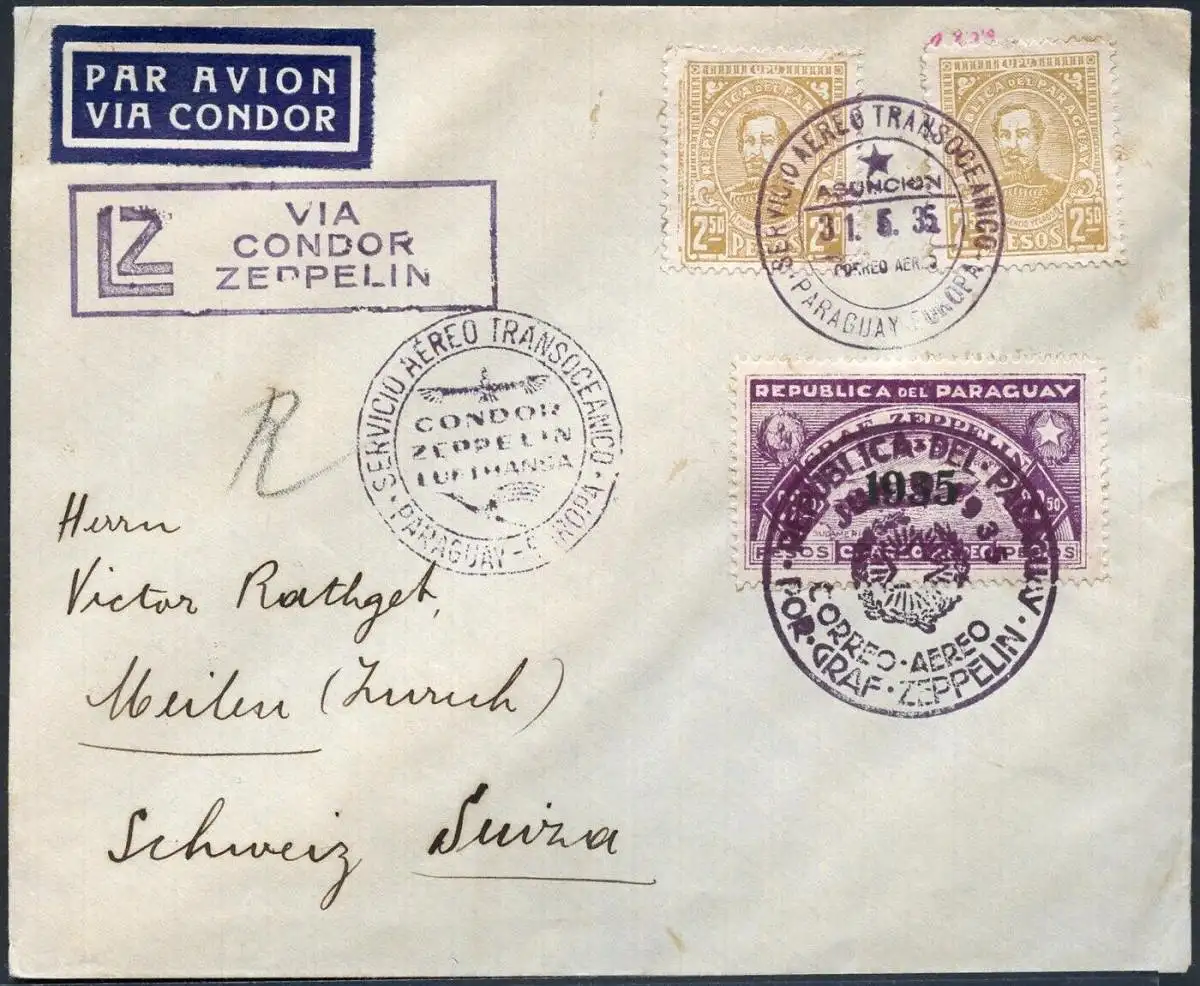 PAR AVION
VIA CONDOR
LZ
VIA
CONDOR
ZEPPELIN
UPU
REPUBLICA DEL PARAGUAY
2.50 PESOS 2.50
UPU
REPUBLICA DEL PARAGUAY
2.50 PESOS
SERVICIO AEREO TRANSOCEANICO
ASUNCION
31. 5. 35
CORREO AEREO
PARAGUAY-EUROPA
SERVICIO AÉREO TRANSOCEANICO
CONDOR
ZEPPELIN
LUFTHANSA
PARAGUAY-EUROPA
REPUBLICA DEL PARAGUAY
GRAF ZEPPELIN
1935
PESOS CORREO AEREO PESOS
REPUBLICA·DEL·PARAGUAY
1935
CORREO·AEREO
POR·GRAF·ZEPPELIN
R
Herrn
Victor Rathgeb,
Meilen (Zurich)
Schweiz Suiza